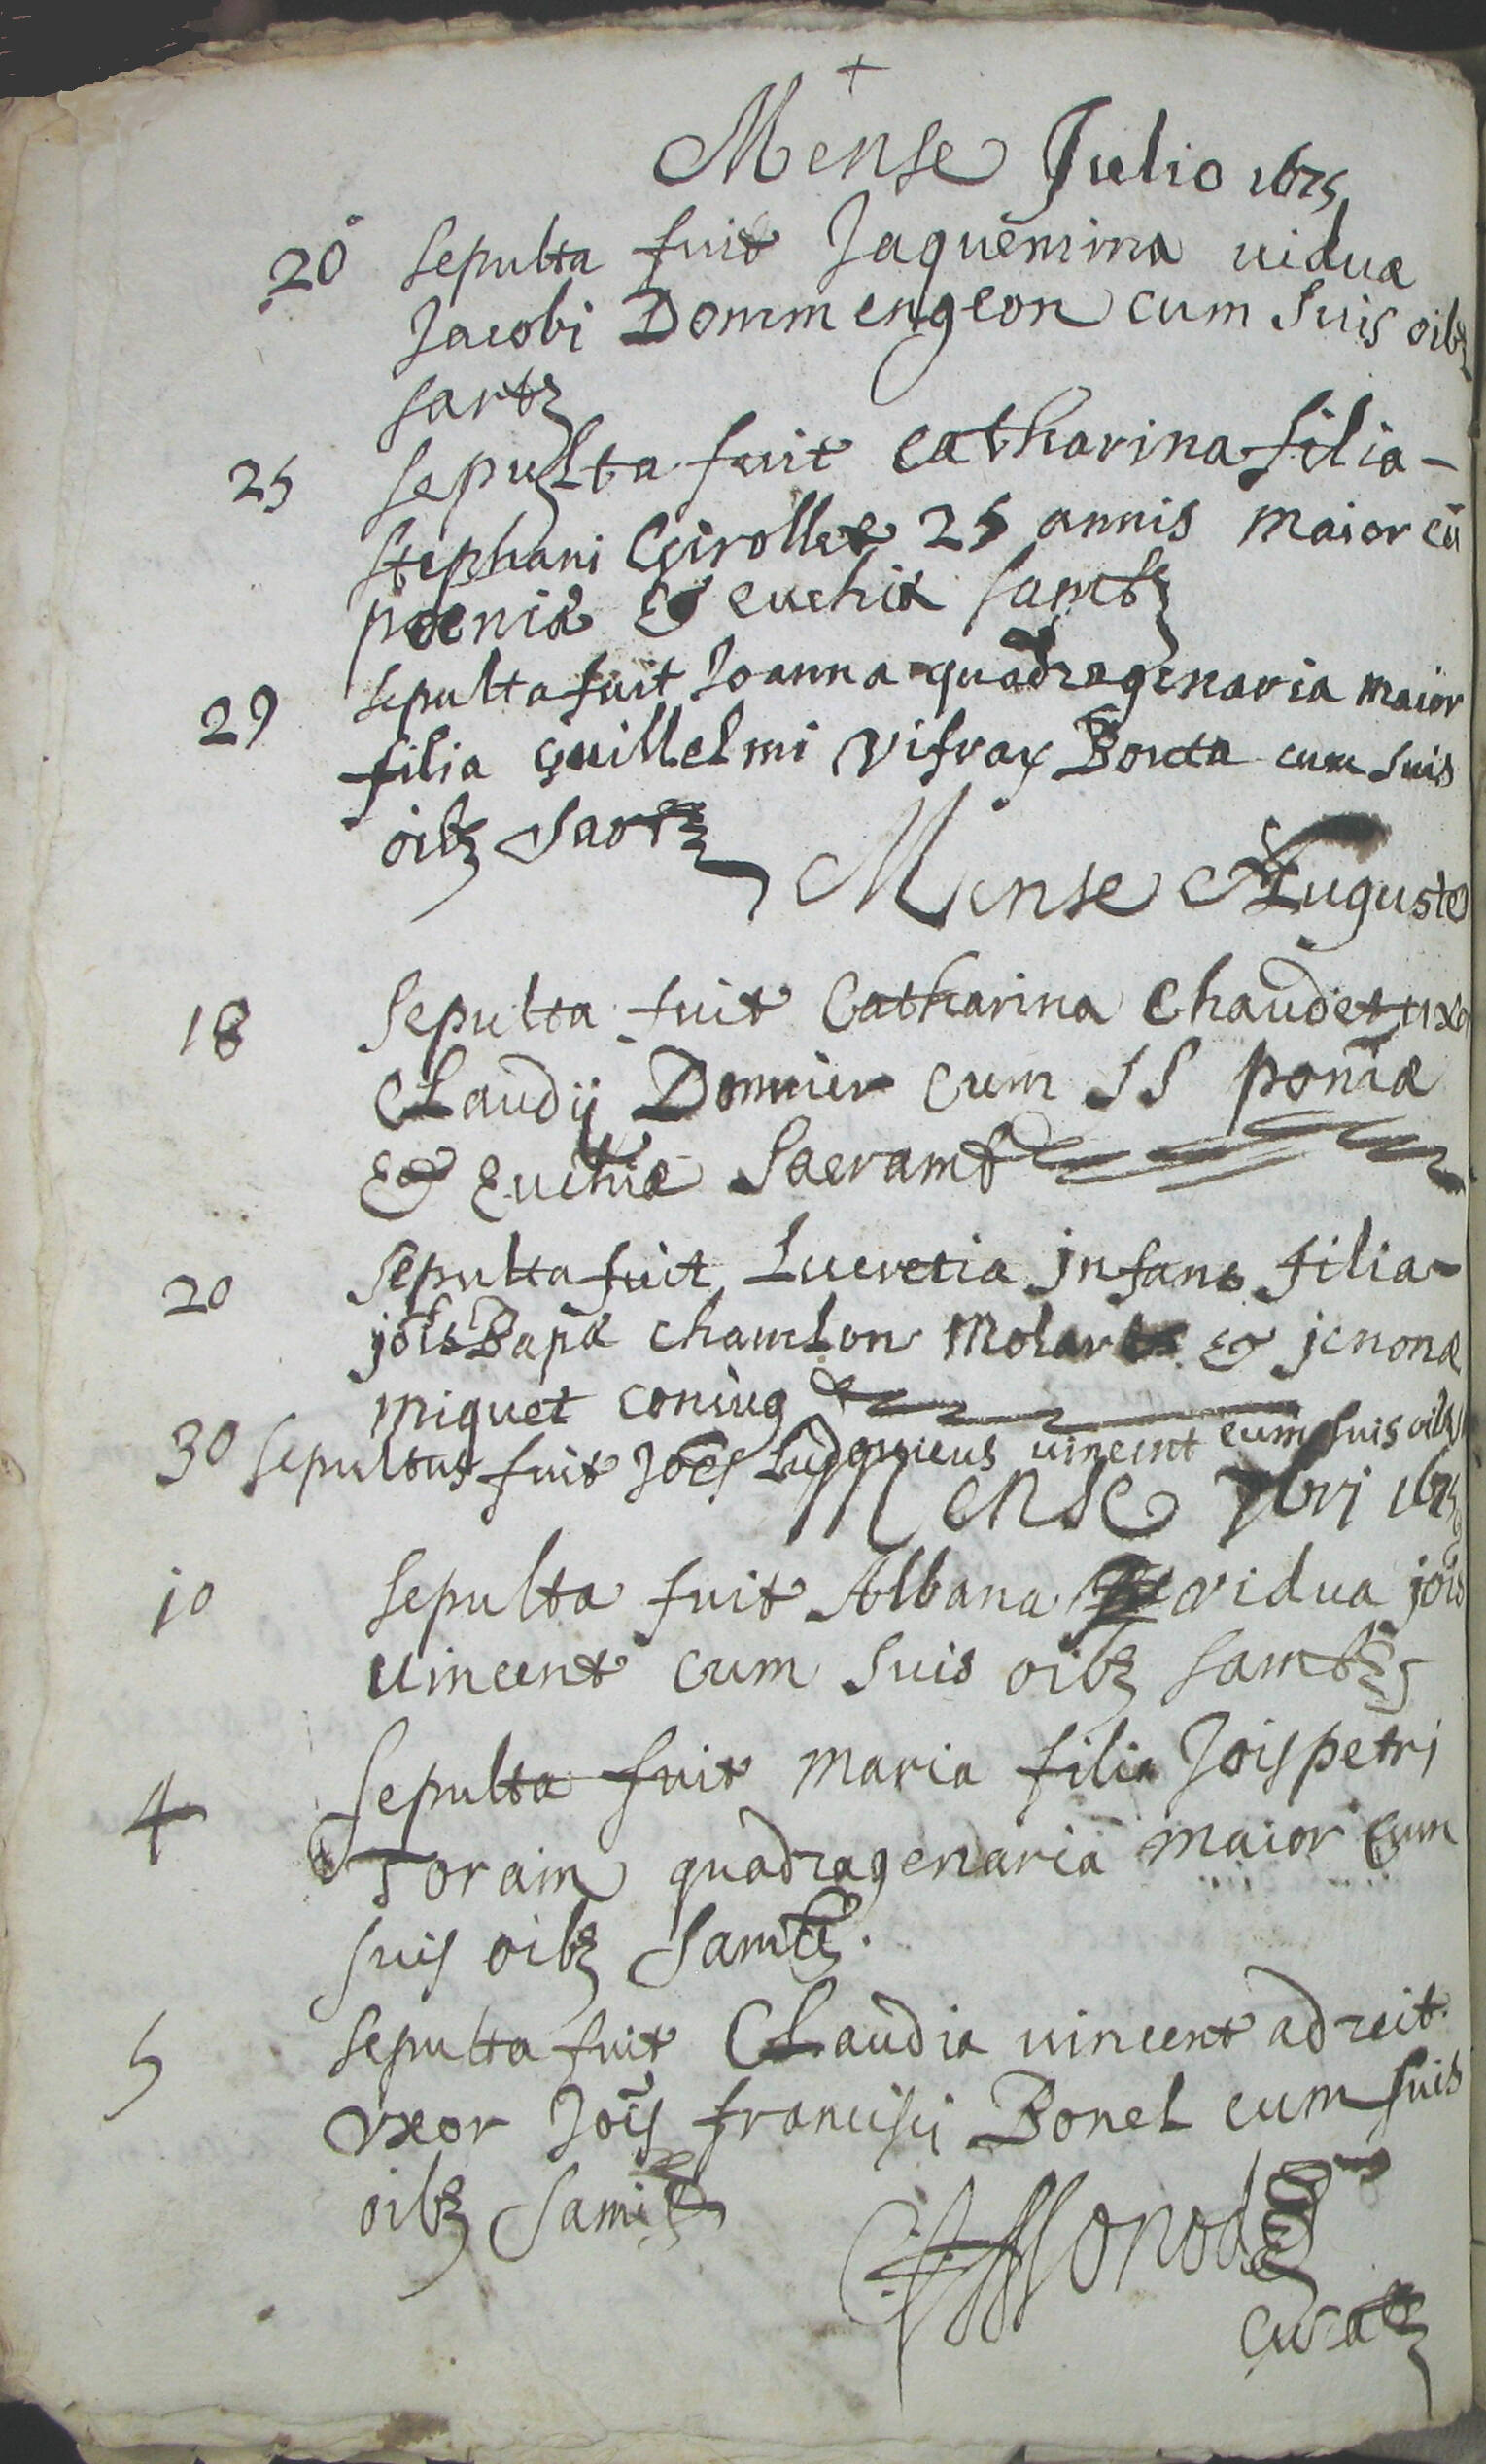 +
Mense Julio 1675
20 sepulta fuit Jaquemina uidua
Jacobi Dommengeon cum suis oibz
sartz
25 sepulta fuit Catharina filia -
stephani Girollet 25 annis maior cū
poeniæ & euchiæ samtz
29 sepulta fuit Joanna quadragenaria maior
filia guillelmi vifray Bocta cum suis
oibz sartz
Mense Augusto
18 sepulta fuit Catharina chaudet uxo
Claudij Domier cum SS poniæ
& euchiæ Sacramt
20 sepulta fuit Lucretia infans filia -
jōis Bapæ chamLon Molar & jenonæ
miquet coniug
30 sepultus fuit Joēs Ludovicus uincent cum suis oibz
Mense 7bri 1675
10 sepulta fuit Albana vidua jōis
uincent cum suis oibz samtz
4 sepulta fuit maria filia Jois petri
Torain quadragenaria maior cum
suis oibz samtz.
5 sepulta fuit Claudia uincent adreit
vxor Jōis francisci Bonel cum suis
oibz samtz
Monod
curatz